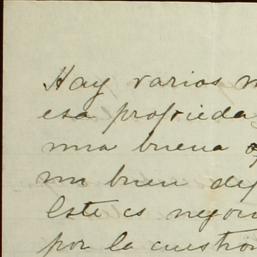 Hay varios
esa propieda
una buena
un buen de
Este es nego
por la cuestion